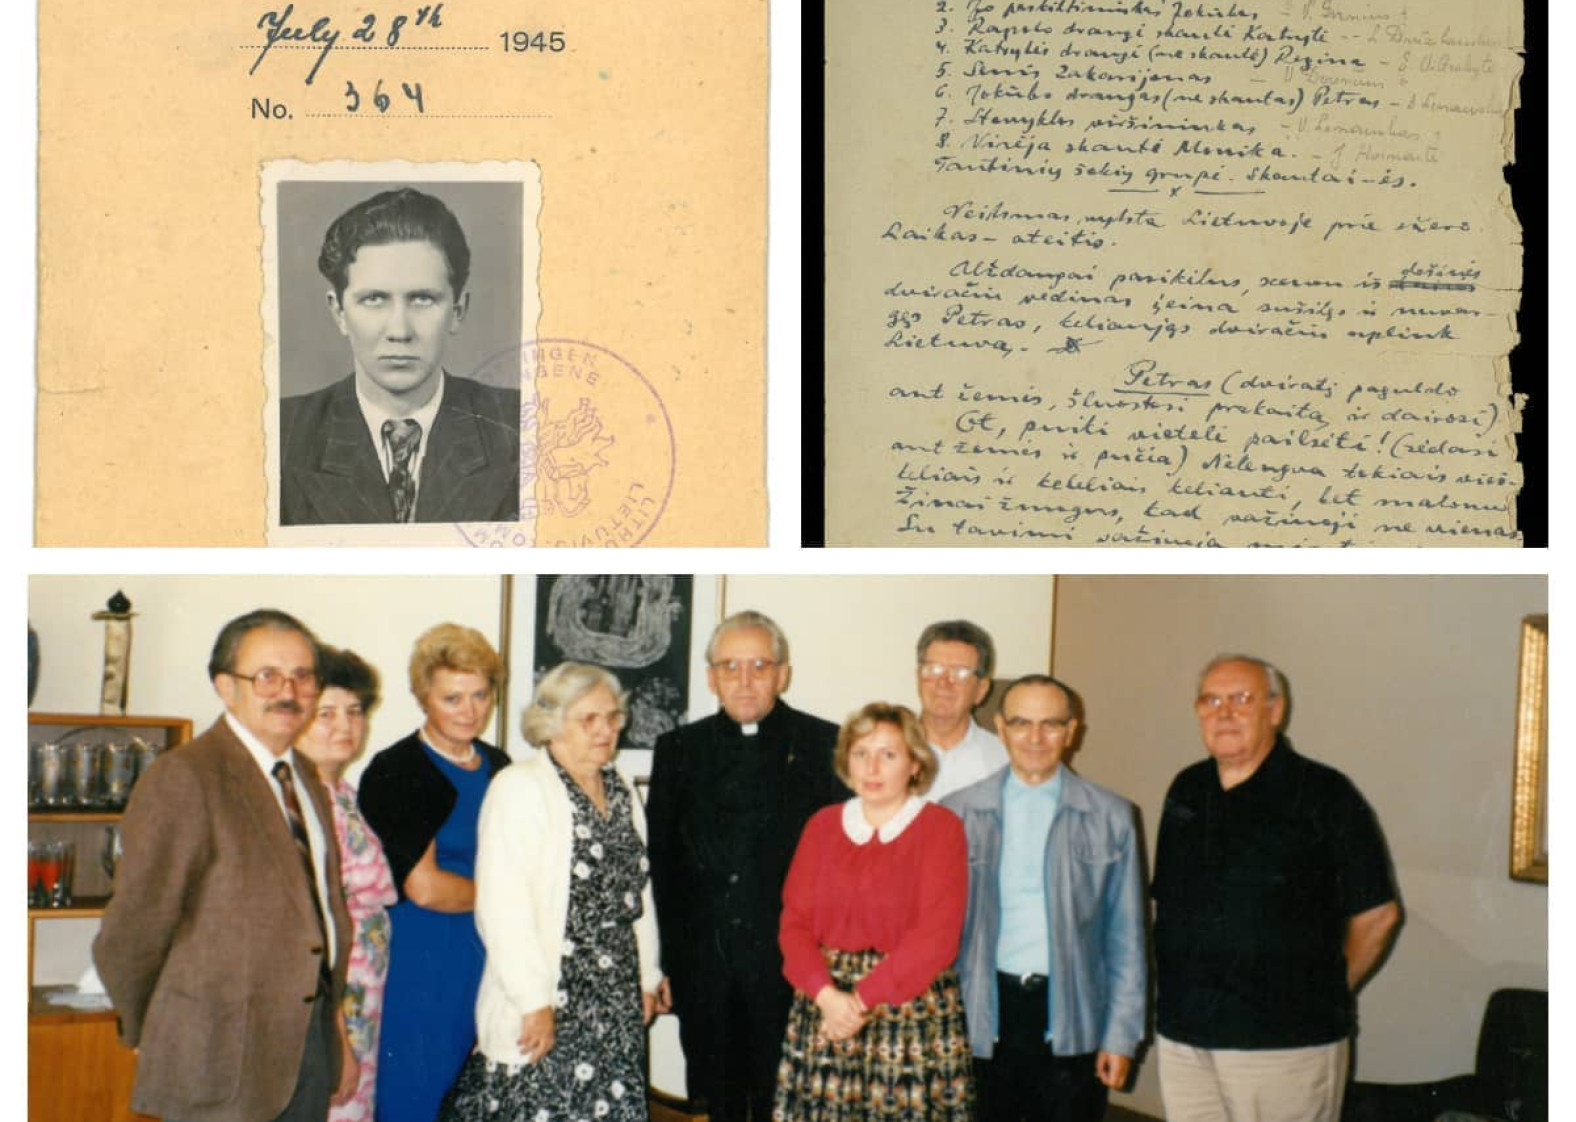 July 28th 1945
No. 364
INGEN
NGENE
LITHU
LIETUVI
2. Jo paskiltininkas Jokūbas - V. Germinas
3. Rapolo draugė skautė Katrytė -- L
4. Katrytės draugė (ne skautė) Regina - E
5. Senis Zakarijonas - V
6. Jokūbo draugas (ne skautas) Petras -
7. Stovyklos viršininkas - V.
8. Virėja skautė Monika. - J
Tautinių šokių grupė. Skautai-ės.
x
Veiksmas vyksta Lietuvoje prie ežero.
Laikas - ateitis.
Uždangai pasikėlus, scenon iš dešinės
dviračiu vedinas įeina sušilęs ir nuvar-
gęs Petras, keliaująs dviračiu aplink
Lietuvą.
Petras (dviratį paguldo
ant žemės, šluostosi prakaitą ir dairosi)
Ot, puiki vietelė pailsėti! (sėdasi
ant žemės ir pučia) Nelengva tokiais vieš-
keliais ir keleliais keliauti, bet malonu
Žinai žmogus, kad važiuoji ne vienas
Su tavimi važiuoja